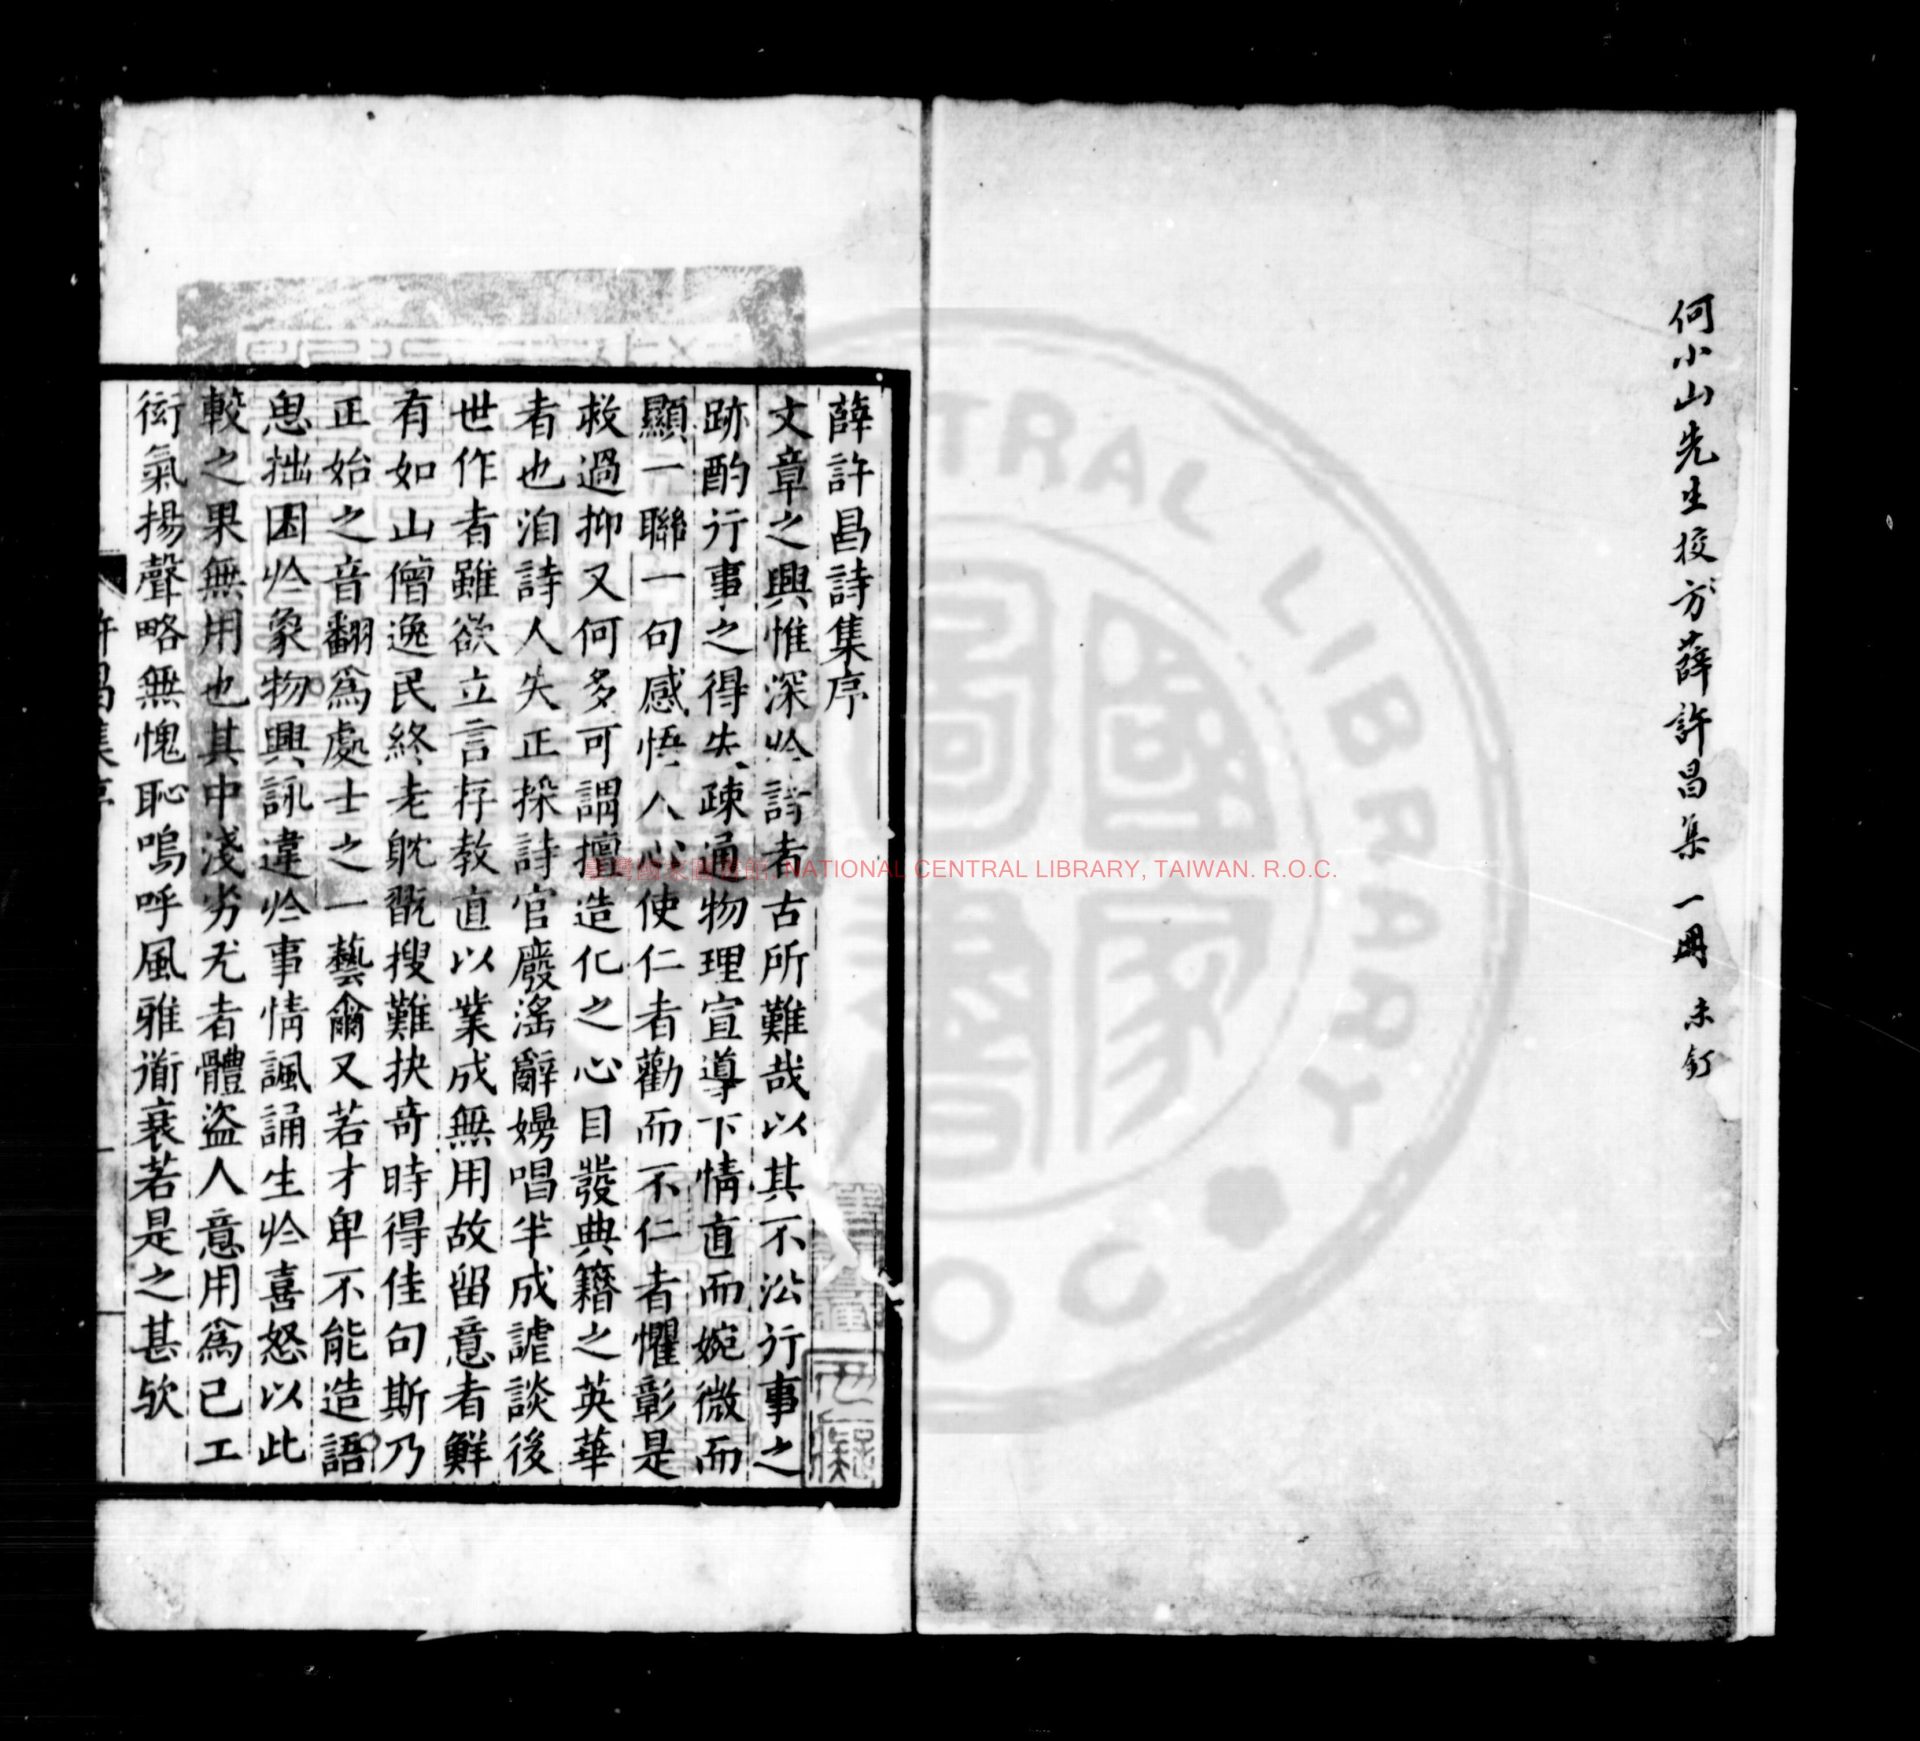 何小山先生校方薛許昌集一冊 未釘
薛許昌詩集序
文章之興惟深於詩者古所難哉以其不沿行事之
跡酌行事之得失疎通物理宣導下情直而婉微而
顯一聯一句感悟人心使仁者勸而不仁者懼彰是
救過抑又何多可謂擅造化之心目發典籍之英華
者也洎詩人失正採詩官廢滛辭嫚唱半成謔談後
世作者雖欲立言存教直以業成無用故留意者鮮
有如山僧逸民終老躭翫搜難抉奇時得佳句斯乃
正始之音翻爲處士之一藝爾又若才卑不能造語
思拙困於象物興訊違於事情諷誦生於喜怒以此
較之果無用也其中淺劣尤者體盜人意用爲己工
衒氣揚聲略無愧恥嗚呼風雅道衰若是之甚歟
許昌集序
臺灣國家圖書館, NATIONAL CENTRAL LIBRARY, TAIWAN. R.O.C.
TRAL LIBRARY
R.O.C
國家圖書